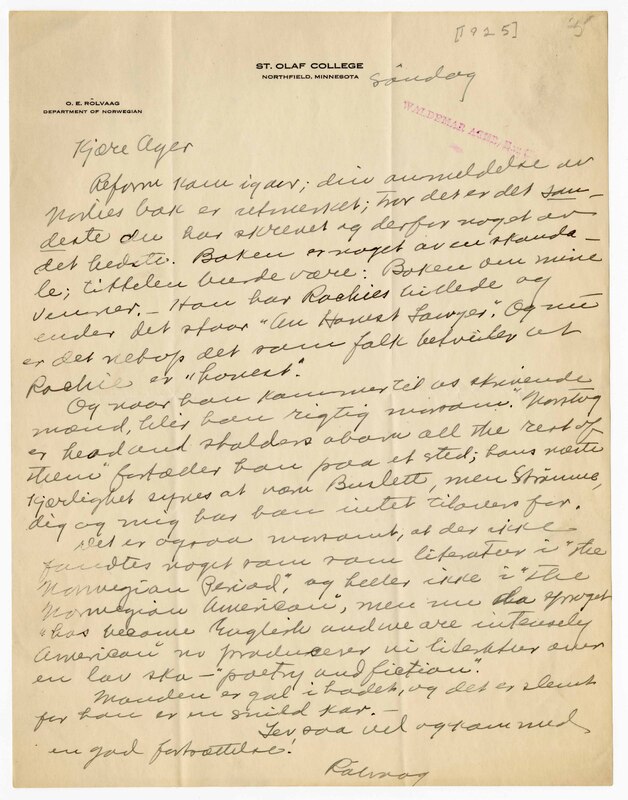 [1925]
ST. OLAF COLLEGE
NORTHFIELD, MINNESOTA
Søndag
O. E. RÖLVAAG
DEPARTMENT OF NORWEGIAN
WALDEMAR AGER,
Kjære Ager
Reform kom igaar; din anmeldelse av
Norlies bok er utmerket; tror det er det san-
deste du har skrevet og derfor noget av
det bedste. Boken er noget av en skanda-
le; tittelen burde være: Boken om mine
venner. – Han har Rachies billede og
under det staar "An Honest Lawyer". Og nu
er det netop det som folk betviler at
Rachie er "honest".
Og naar han kommer til os skrivende
mænd, blir han rigtig morsom. "Norstog
er head and sholders above all the rest of
them" fortæller han paa et sted; hans næste
kjærlighet synes at være Buslett, men Strømme,
dig og mig har han intet tilovers for.
Det er ogsaa morsomt, at der ikke
fandtes noget som som literatur i "the
Norwegian Period", og heller ikke i "the
Norwegian American", men nu da sproget
"has become English and we are intensely
American" nu producerer vi literatur over
en lav sko – "poetry and fiction".
Manden er gal i hodet, og det er slemt
for han er en snild kar. –
Lev saa vel og kom med
en god fortsættelse!
Rölvaag